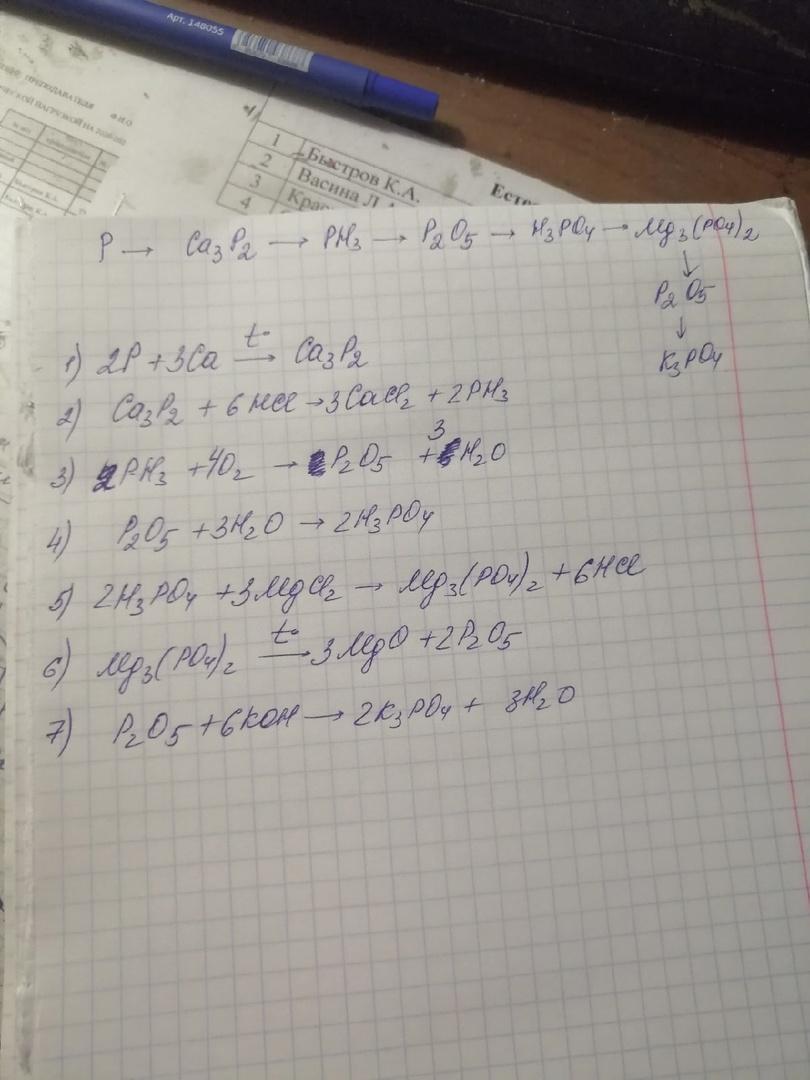 Арт. 148055
ПРЕПОДАВАТЕЛЯ
Ф.И.О
НАГРУЗКОЙ НА
1 Быстров К.А.
2 Васина Л.А.
3 Крас
4
Есте
P → Ca₃P₂ → PH₃ → P₂O₅ → H₃PO₄ → Mg₃(PO₄)₂
↓
P₂O₅
↓
K₃PO₄
1) 2P + 3Ca t° → Ca₃P₂
2) Ca₃P₂ + 6HCl → 3CaCl₂ + 2PH₃
3) 2PH₃ + 4O₂ → P₂O₅ + 3H₂O
4) P₂O₅ + 3H₂O → 2H₃PO₄
5) 2H₃PO₄ + 3MgCl₂ → Mg₃(PO₄)₂ + 6HCl
6) Mg₃(PO₄)₂ t° → 3MgO + 2P₂O₅
7) P₂O₅ + 6KOH → 2K₃PO₄ + 3H₂O